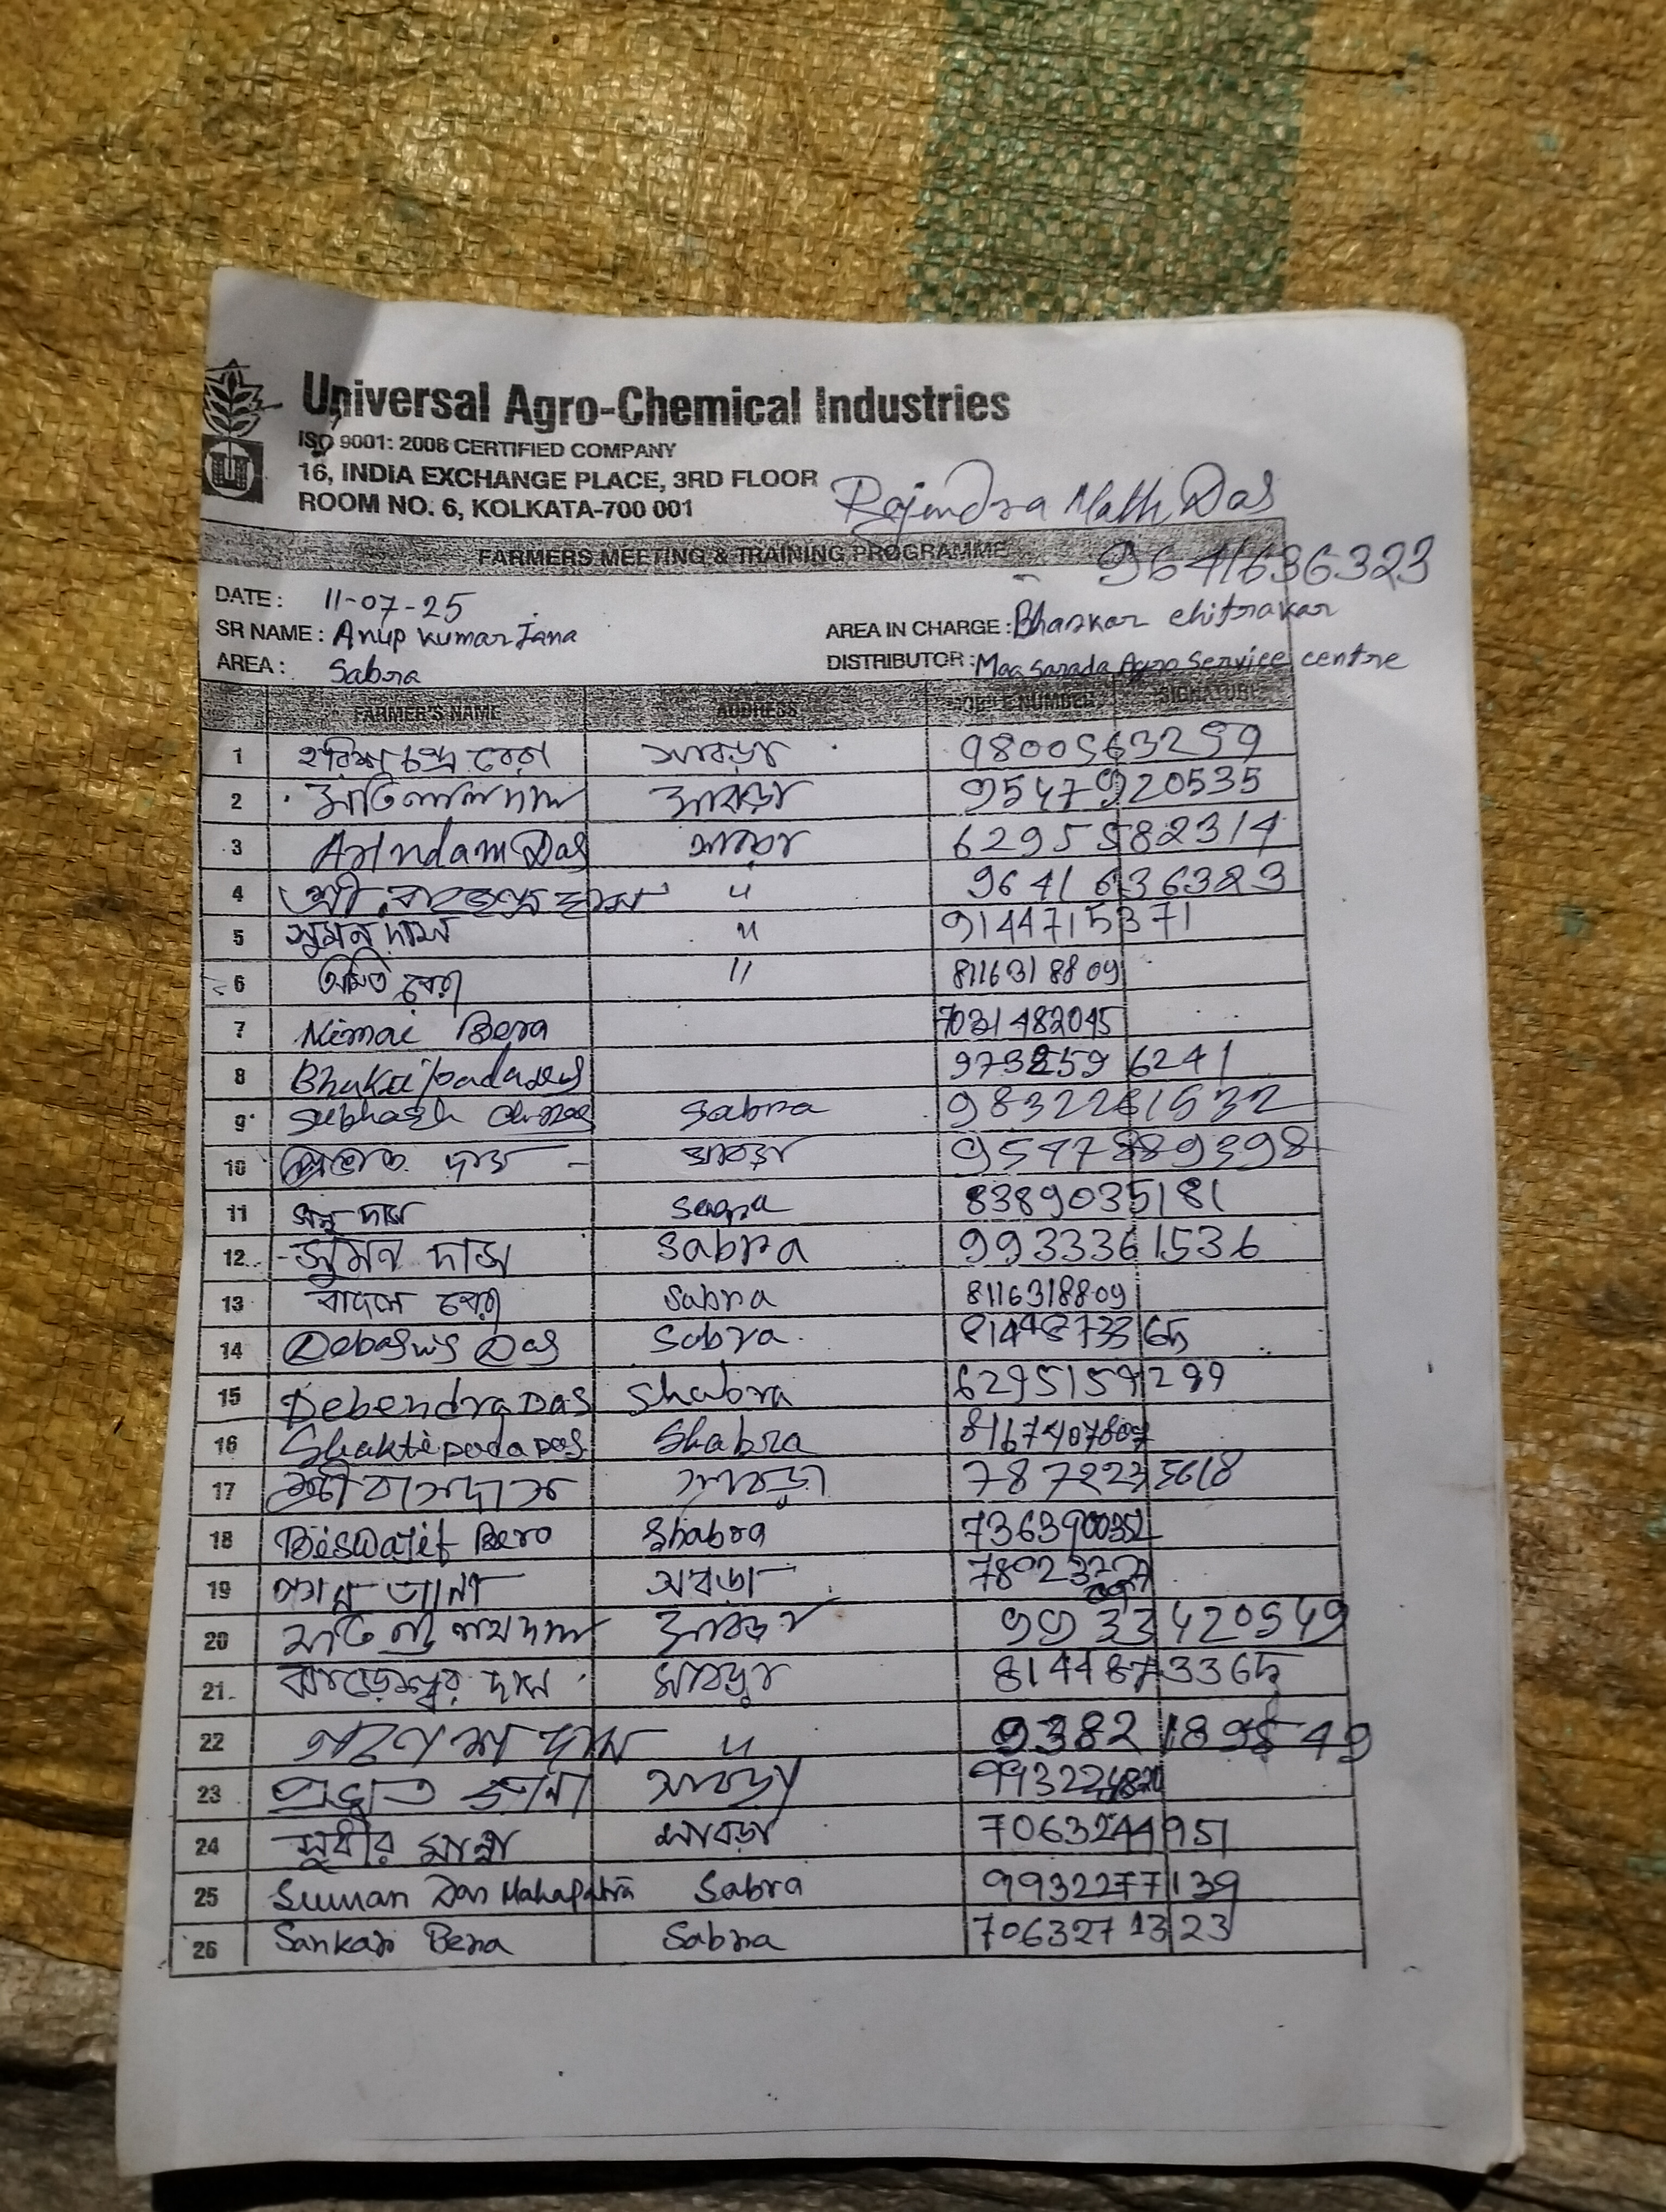 Universal Agro-Chemical Industries
ISO 9001: 2008 CERTIFIED COMPANY
16, INDIA EXCHANGE PLACE, 3RD FLOOR
ROOM NO. 6, KOLKATA-700 001
Rajendra Nath Das
9641636323
FARMERS MEETING & TRAINING PROGRAMME
DATE : 11-07-25
SR NAME : Anup Kumar Jana AREA IN CHARGE : Bhaskar chitrakar
AREA : Sabra DISTRIBUTOR : Maa Sarada Agro Service centre
FARMER'S NAME ADDRESS NUMBER SIGNATURE
1 হরিশ চন্দ্র বেরা সাবড়া 9800563259
2 মতিলাল দাস সাবড়া 9547920535
3 Arindam Das সাবড়া 6295582314
4 শ্রী দাস " 9641636323
5 সুমন দাস " 9144715371
6 অমিত বেরা " 8116318809
7 Nimai Bera 7031482045
8 Bhaktipada das 6241
9 Subhash Sabra 9832281532
10 দাস সাবড়া 9547889398
11 দাস 8389035181
12 সুমন দাস Sabra 9933361536
13 বাদল বেরা Sabra 8116318809
14 Debasis Das Sabra 8144873365
15 Debendra Das Shabra 6295159299
16 Shaktipada Das Shabra
17 শ্রীবাস দাস সাবড়া 7872235618
18 Biswajit Bera Shabra
19 জানা সাবড়া
20 দাস সাবড়া 9933420549
21 ঝাড়েশ্বর দাস সাবড়া 8144873365
22 দাস "
23 প্রভাত জানা সাবড়া
24 সুধীর মান্না সাবড়া 7063244951
25 Suman Das Mahapatra Sabra 9932277139
26 Sankar Bera Sabra 7063271323